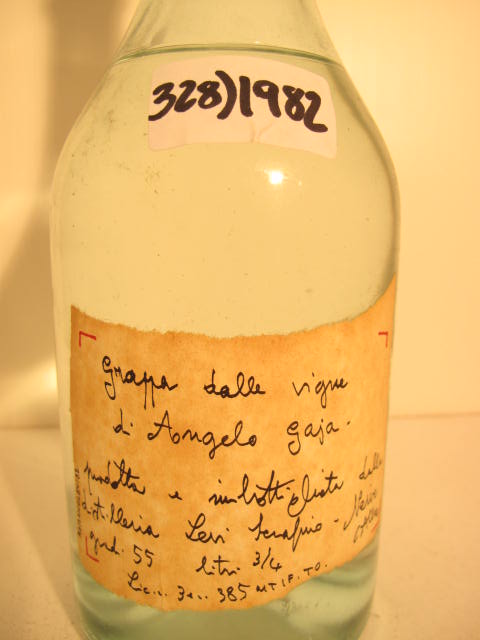 328) 1982
Grappa dalle vigne
di Angelo Gaja.
prodotta e imbottigliata dalla
distilleria Levi Serafino - Neive
grad. 55 litri 3/4
385 MT IF. TO.